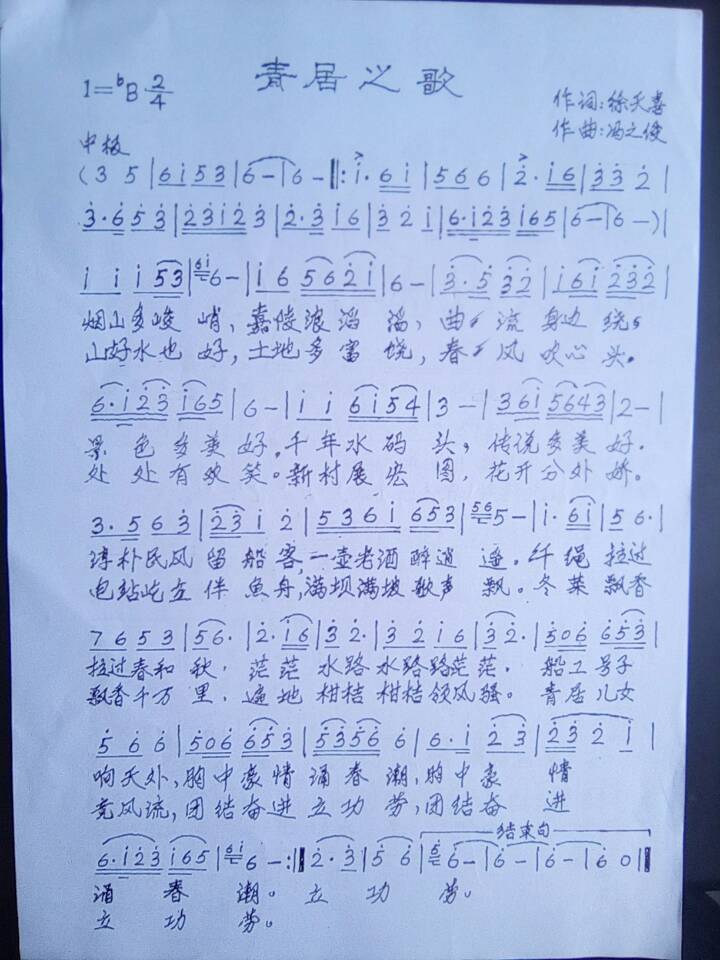 青居之歌
1=ᵇB 2/4
作词:徐天喜
作曲:冯之俊
中板
(3 5|6i53|6-|6-‖:i·6i|566|2·i6|332|
3·653|23i23|2·3i6|32i|6·i23i65|6-|6-)|
iii53|6i6-|i6562i|6-|3·532|i6i232|
烟山多峻峭，嘉陵浪滔滔，曲 流身边绕，
山好水也好，土地多富饶，春 风吹心头。
6·i23i65|6-|ii6i54|3-|36i5643|2-|
景色多美好。千年水码头，传说多美好．
处处有欢笑。新村展宏图，花开分外娇。
3·563|23i2|536i653|565-|i·6i|56·|
淳朴民风留船客，一壶老酒醉逍遥。纤绳拉过
电站屹立伴鱼舟，满坝满坡歌声飘。冬菜飘香
7653|56·|2·i6|32·|32i6|32·|506653|
拉过春和秋，茫茫水路水路路茫茫． 船工号子
飘香千万里．遍地柑桔柑桔领风骚。青居儿女
566|506653|53566|6·i23|232i|
响天外，胸中豪情涌春潮，胸中豪情
竞风流，团结奋进立功劳，团结奋进
结束句
6·i23i65|6i6-:‖2·3|56|66-|6-|6-|60‖
涌春潮。立功劳。
立功劳。